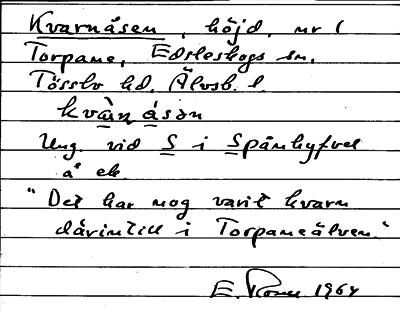 Kvarnåsen, höjd, nr 1
Torpane, Edsleskogs sn,
Tössbo hd. Älvsb. l.
kvà̀n ásən
Ung. vid S i Spånhyfvel
å ek.
"Det har nog varit kvarn
därintill i Torpaneälven."
E. 1964